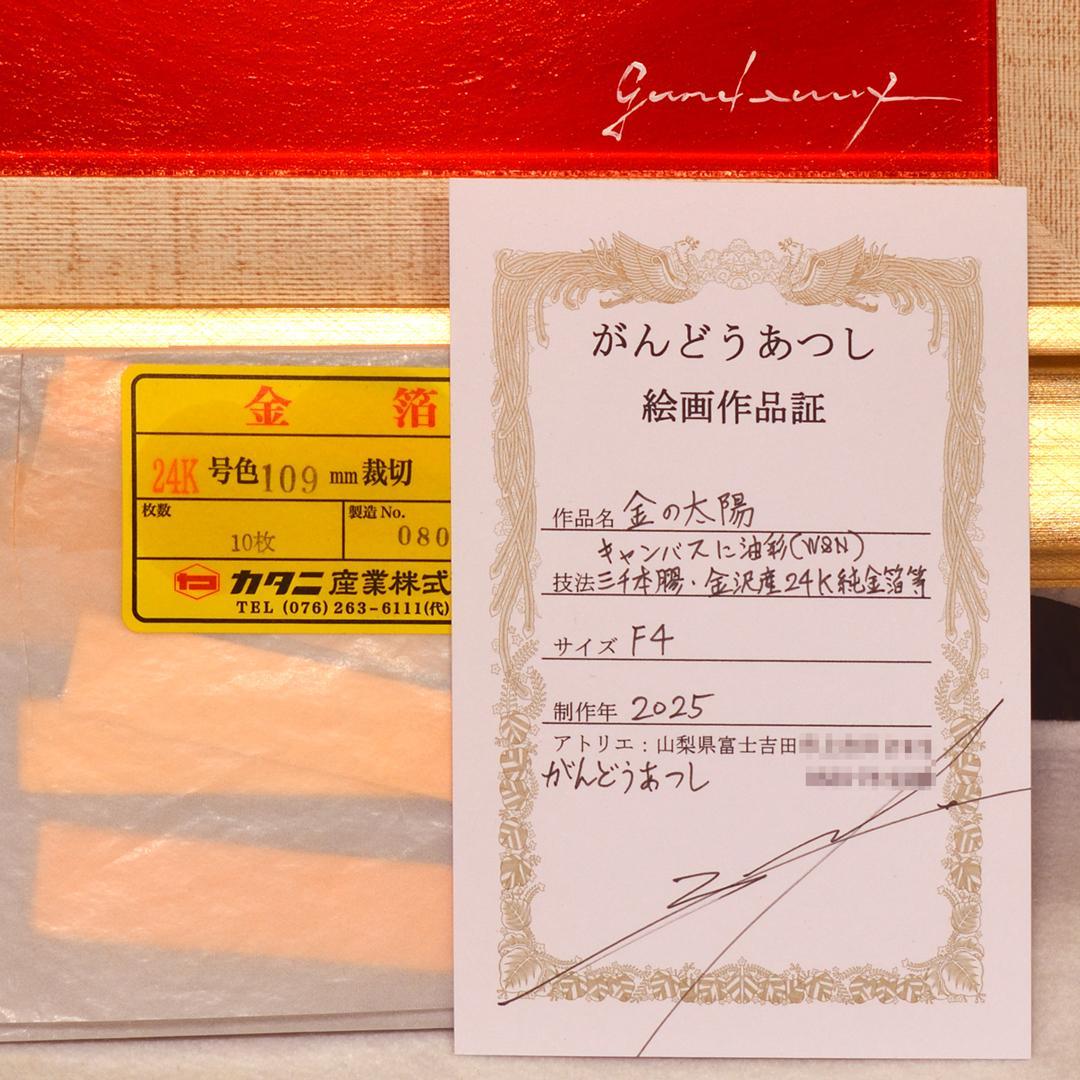 金箔
24K 号色 109 mm 裁切
枚数 製造 No.
10枚 080
カタニ産業株式
TEL (076) 263-6111(代)
がんどうあつし
絵画作品証
作品名 金の太陽
キャンバスに油彩(W&N)
技法 三千本膠・金沢産24K純金箔等
サイズ F4
制作年 2025
アトリエ：山梨県富士吉田
がんどうあつし